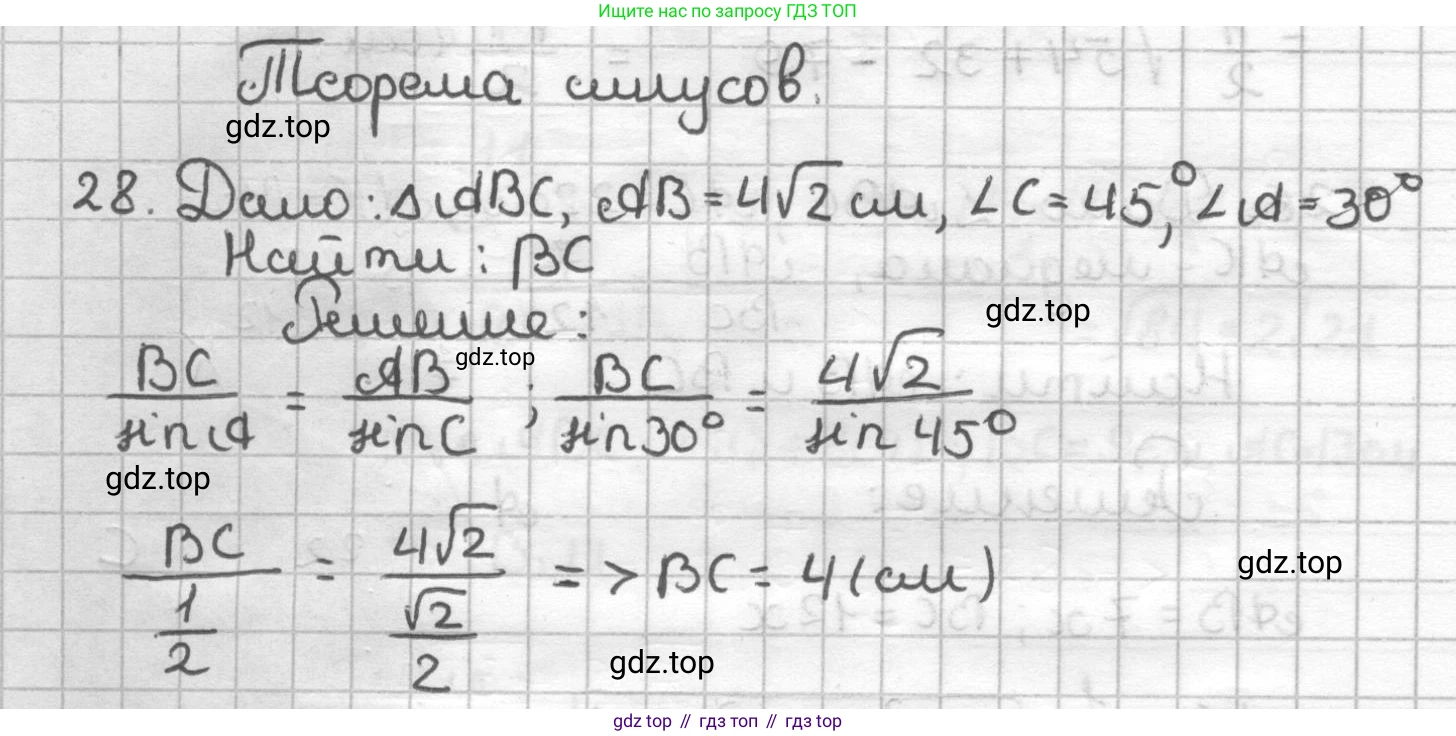 Ищите нас по запросу ГДЗ ТОП
Теорема синусов.
gdz.top
28. Дано: ΔABC, AB = 4√2 см, ∠C = 45°, ∠A = 30°
Найти: BC
gdz.top
Решение:
gdz.top
BC/sin A = AB/sin C ; BC/sin 30° = 4√2/sin 45°
gdz.top
BC/(1/2) = 4√2/(√2/2) => BC = 4 (см)
gdz.top
gdz.top
gdz top // гдз топ // гдз top